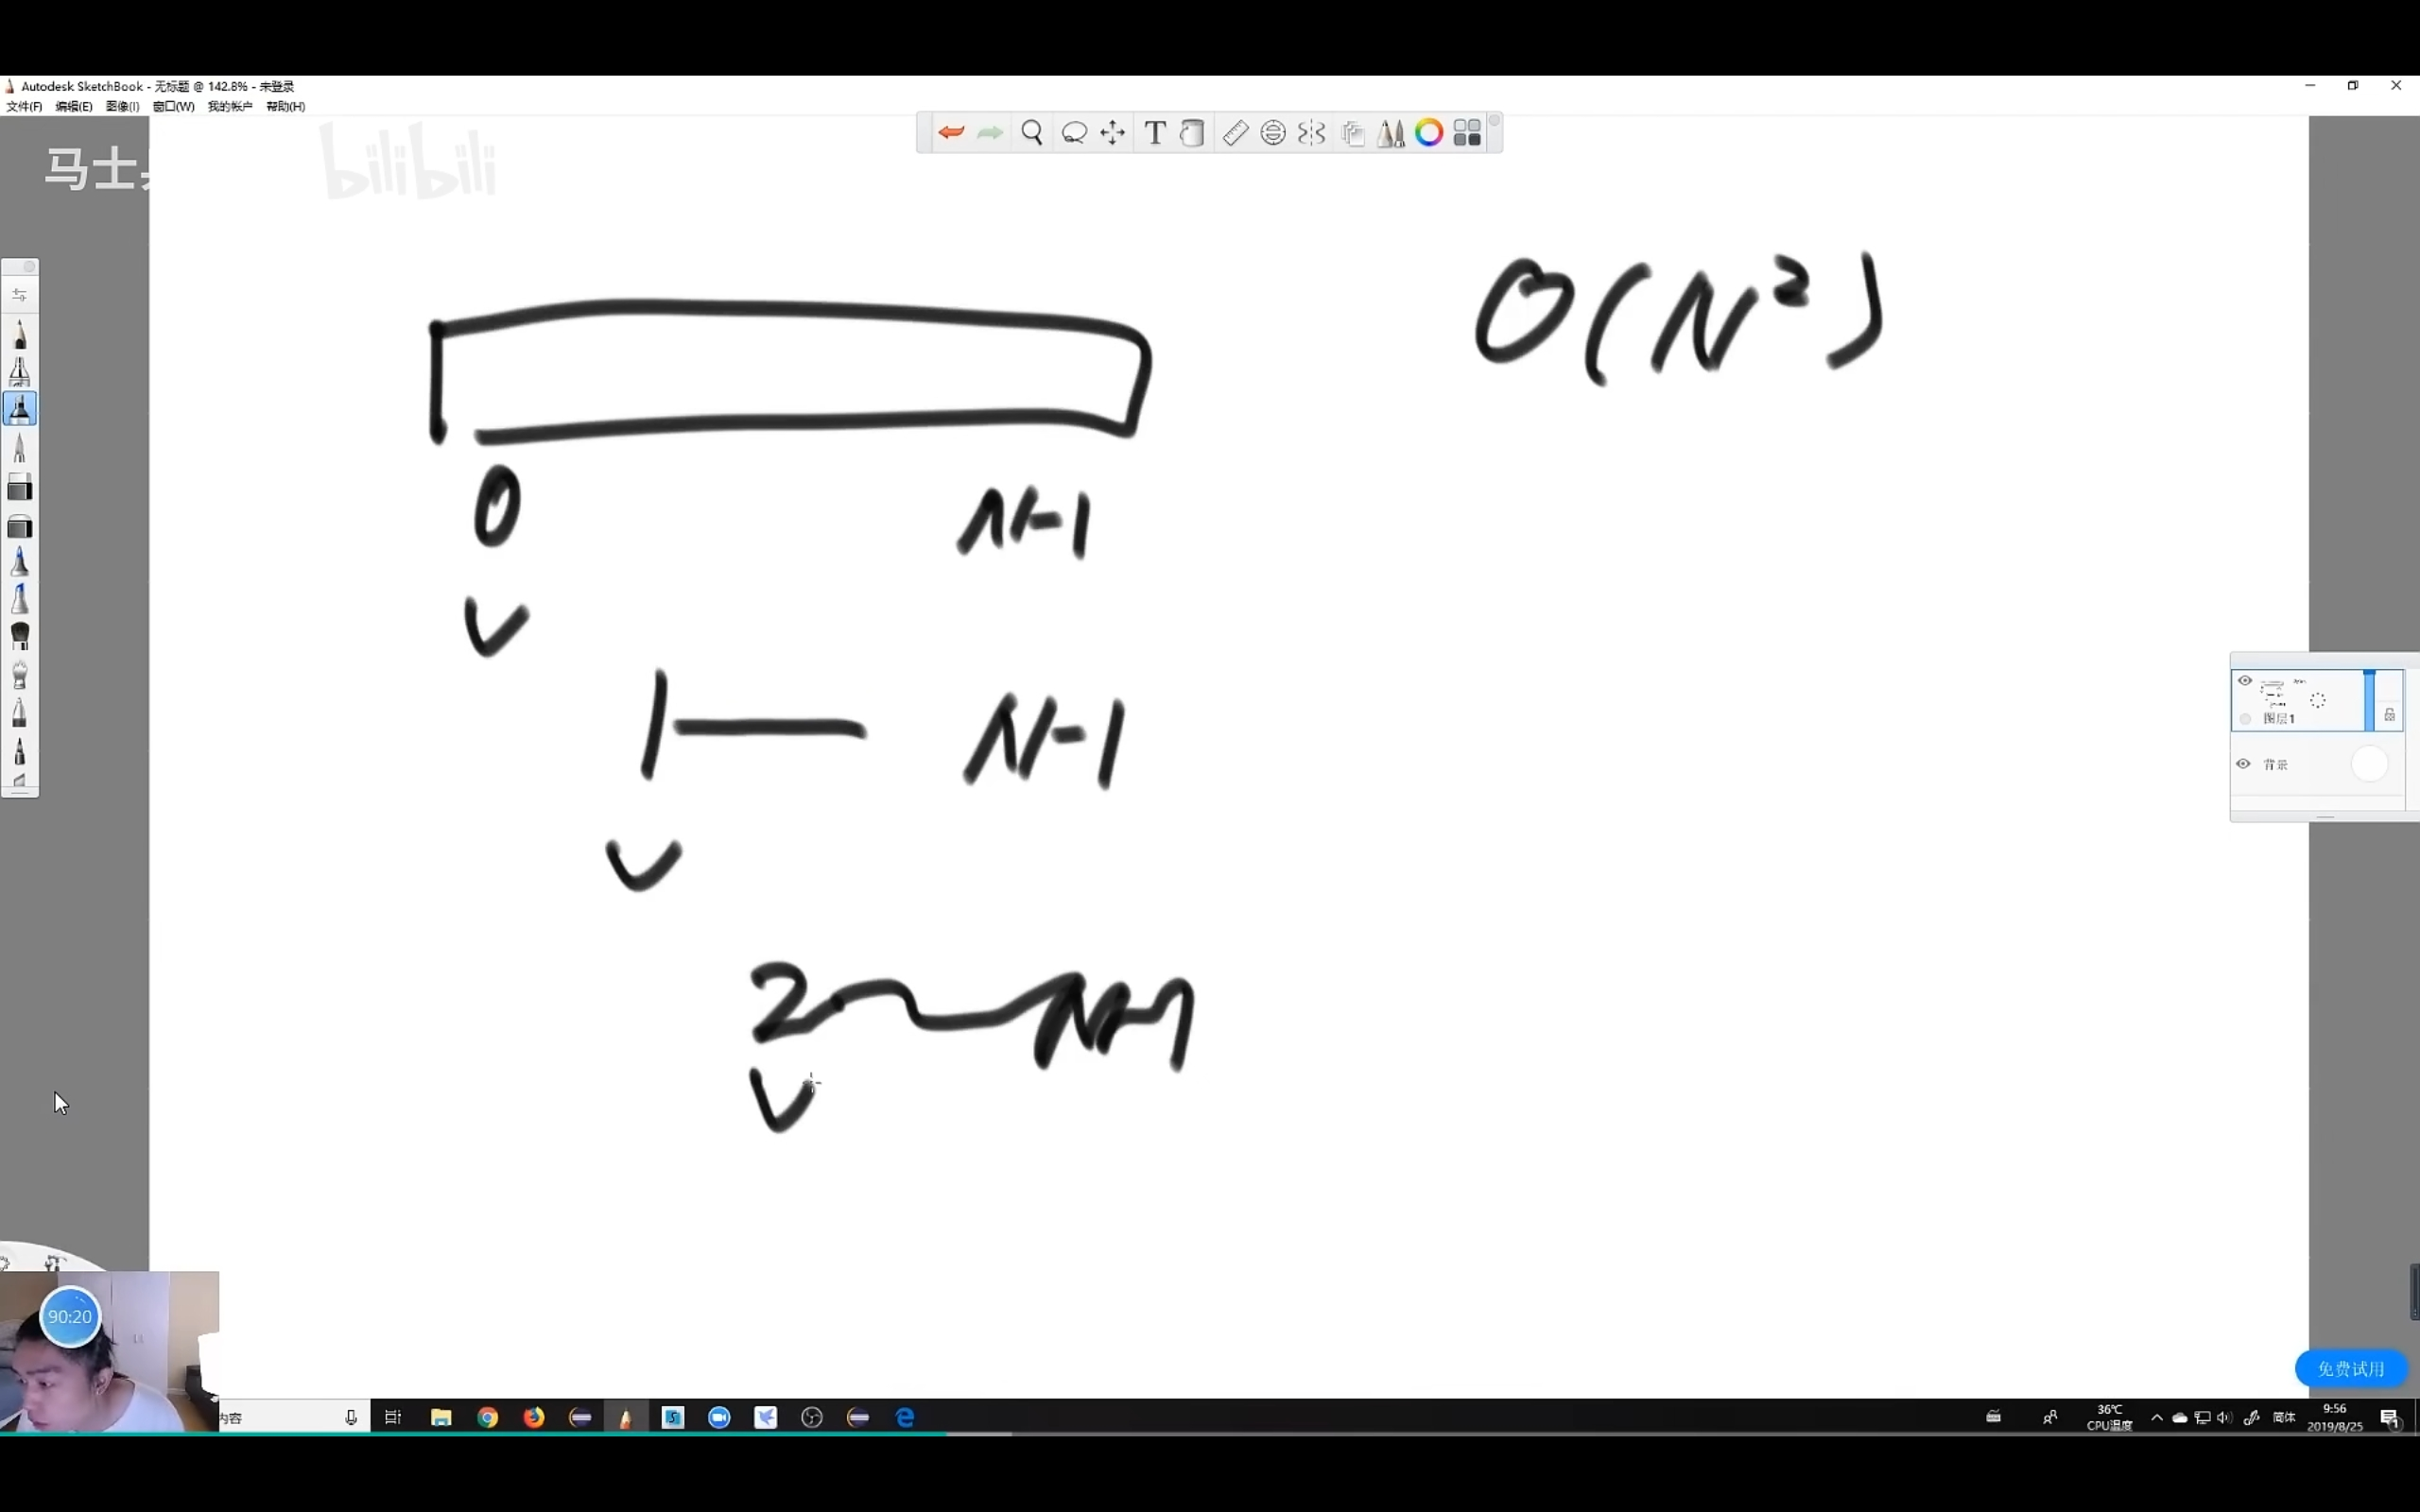 Autodesk SketchBook - 无标题 @ 142.8% - 未登录
文件(F) 编辑(E) 图像(I) 窗口(W) 我的帐户 帮助(H)
马士
bilibili
T
O(N²)
0 N-1
1 — N-1
图层1
背景
2 ~ N-1
90:20
免费试用
内容
36℃
CPU温度
简体
9:56
2019/8/25
1